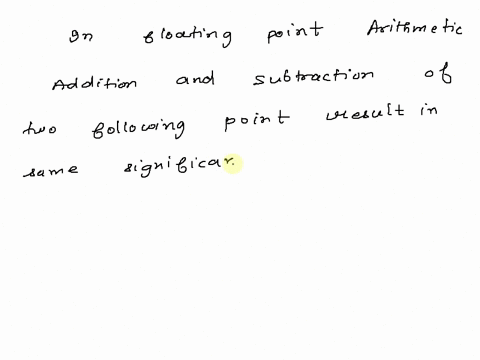 In floating point Arithmetic
Addition and subtraction of
two following point result in
same significan